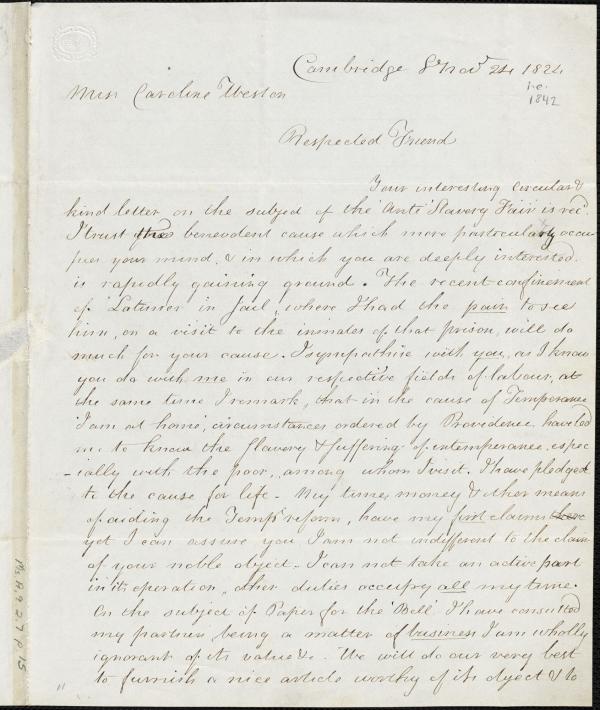 Cambridge 8th Nov 24 1824
i.e. 1842
Miss Caroline Weston
Respected Friend
Your interesting circular &
kind letter on the subject of the Anti Slavery Fair is recd.
I trust the benevolent cause which more particularly occu
pies your mind, & in which you are deeply interested,
is rapidly gaining ground. The recent confinement
of Latimer in Jail, where I had the pain to see
him, on a visit to the inmates of that prison, will do
much for your cause. I sympathise with you, as I know
you do with me in our respective fields of labour, at
the same time I remark, that in the cause of Temperance
I am at home, circumstances ordered by Providence, have led
me to know the slavery & suffering of intemperance, espec
-ially with the poor, among whom I visit. I have pledged
to the cause for life - My time, money & other means
of aiding the Temp. reform, have my first claims
yet I can assure you I am not indifferent to the claim
of your noble object - I can not take an active part
in its operation, other duties occupy all my time.
On the subject of Paper for the Bell I have consulted
my partner, being a matter of business I am wholly
ignorant of its value &c. We will do our very best
to furnish a nice article worthy of its object & to
Ms. A. 9. 2. 7 p. 15